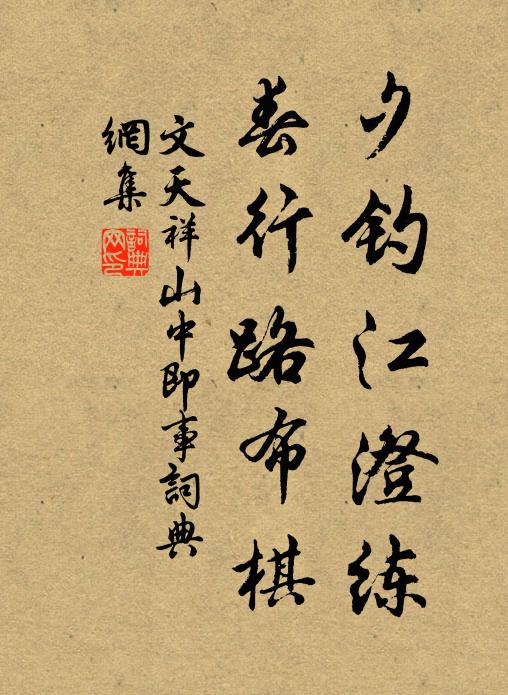 夕钓江澄练
春行路布棋
文天祥山中即事詞典
網集
詞典網印